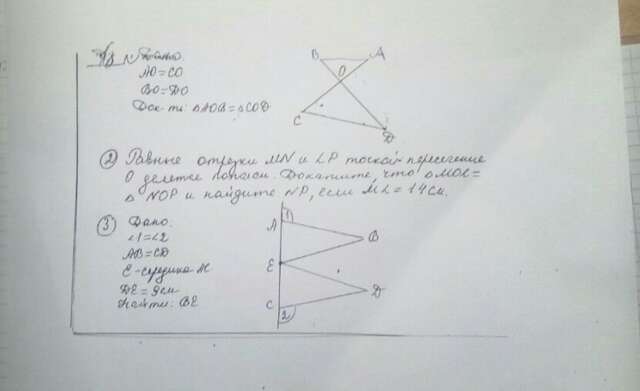 Дано:
AO=CO
BO=DO
Док-ть: △AOB=△COD
B A
O
C
D
② Равные отрезки MN и LP точкой пересечения
O делятся попалам. Докажите, что △MOL=
△ NOP и найдите NP, если ML=14см.
③ Дано:
∠1=∠2
AB=CD
E-середина AC
DE=9см
Найти: BE
A 1
B
E
D
C 2